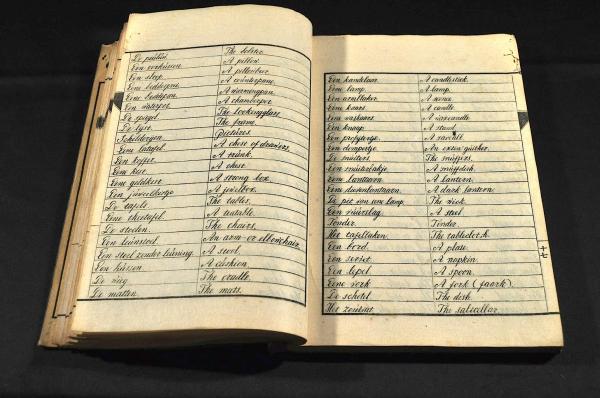 De peuluw. The bolster.
Een oorkussen. A pillow.
Een sloop. A pillowbeer.
Eene beddesprei. A counterpane.
Eene beddepan. A warmingpan.
Een waterpot. A chamberpot.
De spiegel. The lookingglass.
De lijst. The frame.
Schilderijen. Pictures.
Eene latafel. A chest of drawers.
Een koffer. A trunk.
Eene kist. A chest.
Eene geldkist. A strong box.
Een juweelkistje. A jewelbox.
De tafels. The tables.
Eene theetafel. A teatable.
De stoelen. The chairs.
Een leuningstoel. An arm- or elbowchair.
Een stoel zonder leuning. A stool.
Een kussen. A cushion.
De wieg. The cradle.
De matten. The mats.
Een kandelaar. A candlestick.
Eene lamp. A lamp.
Een armblaker. A sconce.
Eene kaars. A candle.
Een waskaars. A waxcandle.
Een knaap. A stand.
Een profijtertje. A saveall.
Een dompertje. An extinguisher.
De snuiters. The snuffers.
Een snuiterbakje. A snuffdish.
Eene lantaarn. A lantern.
Eene dievenlantaarn. A dark lantern.
De pit van een lamp. The wick.
Een vuurslag. A steel.
Tonder. Tinder.
Het tafellaken. The tablecloth.
Een bord. A plate.
Een servet. A napkin.
Een lepel. A spoon.
Eene vork. A fork (faork).
De schotel. The dish.
Het zoutvat. The saltcellar.